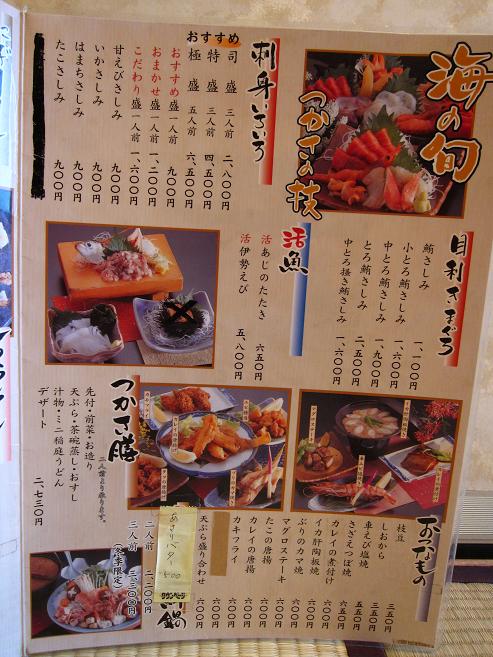 海の旬
つかさの技
刺身いろいろ
おすすめ
司盛 三人前 二、八〇〇円
特盛 三人前 四、五〇〇円
極盛 五人前 六、五〇〇円
おすすめ盛 一人前 九〇〇円
おまかせ盛 一人前 一、二〇〇円
こだわり盛 一人前 一、六〇〇円
甘えびさしみ 九〇〇円
いかさしみ 九〇〇円
はまちさしみ 九〇〇円
たこさしみ 九〇〇円
目利きまぐろ
鮪さしみ 一、一〇〇円
小とろ鮪さしみ 一、六〇〇円
中とろ鮪さしみ 一、九〇〇円
とろ鮪さしみ 二、五〇〇円
中とろ掻き鮪さしみ 一、六〇〇円
活魚
活あじのたたき 六五〇円
活伊勢えび 五、八〇〇円
つかさ膳
二人前より承ります。
先付・前菜・お造り
天ぷら・茶碗蒸し・おすし
汁物・ミニ稲庭うどん
デザート
二、七三〇円
おつなもの
枝豆 三五〇円
しおから 三五〇円
車えび焼 六五〇円
さざえつぼ焼 六五〇円
カレイの煮付け
イカ肝陶板焼 六〇〇円
ぶりのカマ焼 六〇〇円
マグロステーキ 六〇〇円
たこの唐揚 六〇〇円
カレイの唐揚 六〇〇円
カキフライ 六〇〇円
天ぷら盛り合わせ 六〇〇円
あさりバター
500
タウンページ
鍋
二人前 二、二〇〇円
三人前 三、三〇〇円
(冬季限定)